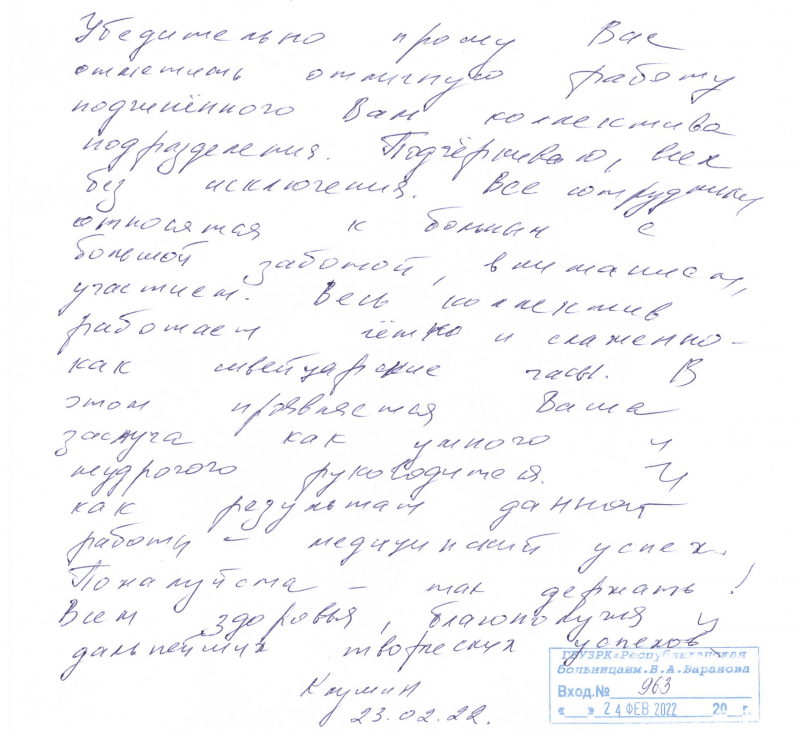 Убедительно прошу Вас
отметить отличную работу
подчинённого Вам коллектива
подразделения. Подчёркиваю, всех
без исключения. Все сотрудники
относятся к больным с
большой заботой, вниманием,
участием. Весь коллектив
работает чётко и слаженно -
как швейцарские часы. В
этом проявляется Ваша
заслуга как умного и
мудрого руководителя. И
как результат данной
работы - медицинский успех.
Пожалуйста - так держать!
Всем здоровья, благополучия и
дальнейших творческих успехов
ГБУЗРК«Республиканская
больницаим.В.А.Баранова
Вход.№ 963
« » 24 ФЕВ 2022 20 г.
23.02.22.